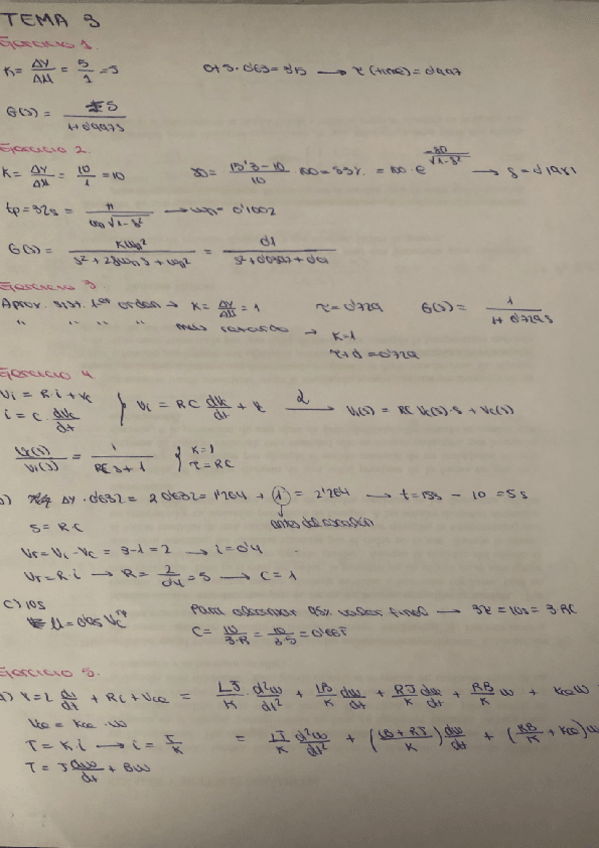 TEMA 3
Ejercicio 1.
K = ΔY/ΔM = 5/1 = 5 → τ (time) = 0'997
G(s) = 5/(1+0'997s)
Ejercicio 2.
K = ΔY/ΔM = 10/1 = 10 = (15'3-10)/10 · 100 = 53% = 100 · e →
tp = 32s = π/(ωn√(1-δ²)) → ωn = 0'1002
G(s) = Kωn²/(s² + 2δωn s + ωn²) =
Ejercicio 3
Aprox. sist. 1er orden → K = ΔY/ΔM = 1 τ = 0'729 G(s) = 1/(1+0'729s)
" " " " más retardo → K=1
τ+d = 0'729
Ejercicio 4
Vi = R i + Vc
i = C · dVc/dt } Vi = RC dVc/dt + Vc → Vi(s) = RC Vc(s) · s + Vc(s)
Vc(s)/Vi(s) = 1/(RCs + 1) { K=1
τ = RC
ΔY · 0'632 = 2 · 0'632 = 1'264 + 1 = 2'264 → t = 15s - 10 = 5s
antes del escalón
5 = RC
Vr = Vi - Vc = 3-1 = 2 → i = 0'4
Vr = R i → R = 2/0'4 = 5 → C = 1
c) 10s
Para alcanzar 95% valor final → 3τ = 10s = 3RC
C = 10/(3·R) = 10/(3·5) =
Ejercicio 5.
+ Ri + Vce = LJ/K · d²ω/dt² + LB/K dω/dt + RJ/K dω/dt + RB/K ω + Kce ω
Vce = Kce · ω
T = K i → i = T/K = LJ/K d²ω/dt² + ((LB+RJ)/K) dω/dt + (RB/K + Kce) ω
T = J dω/dt + Bω